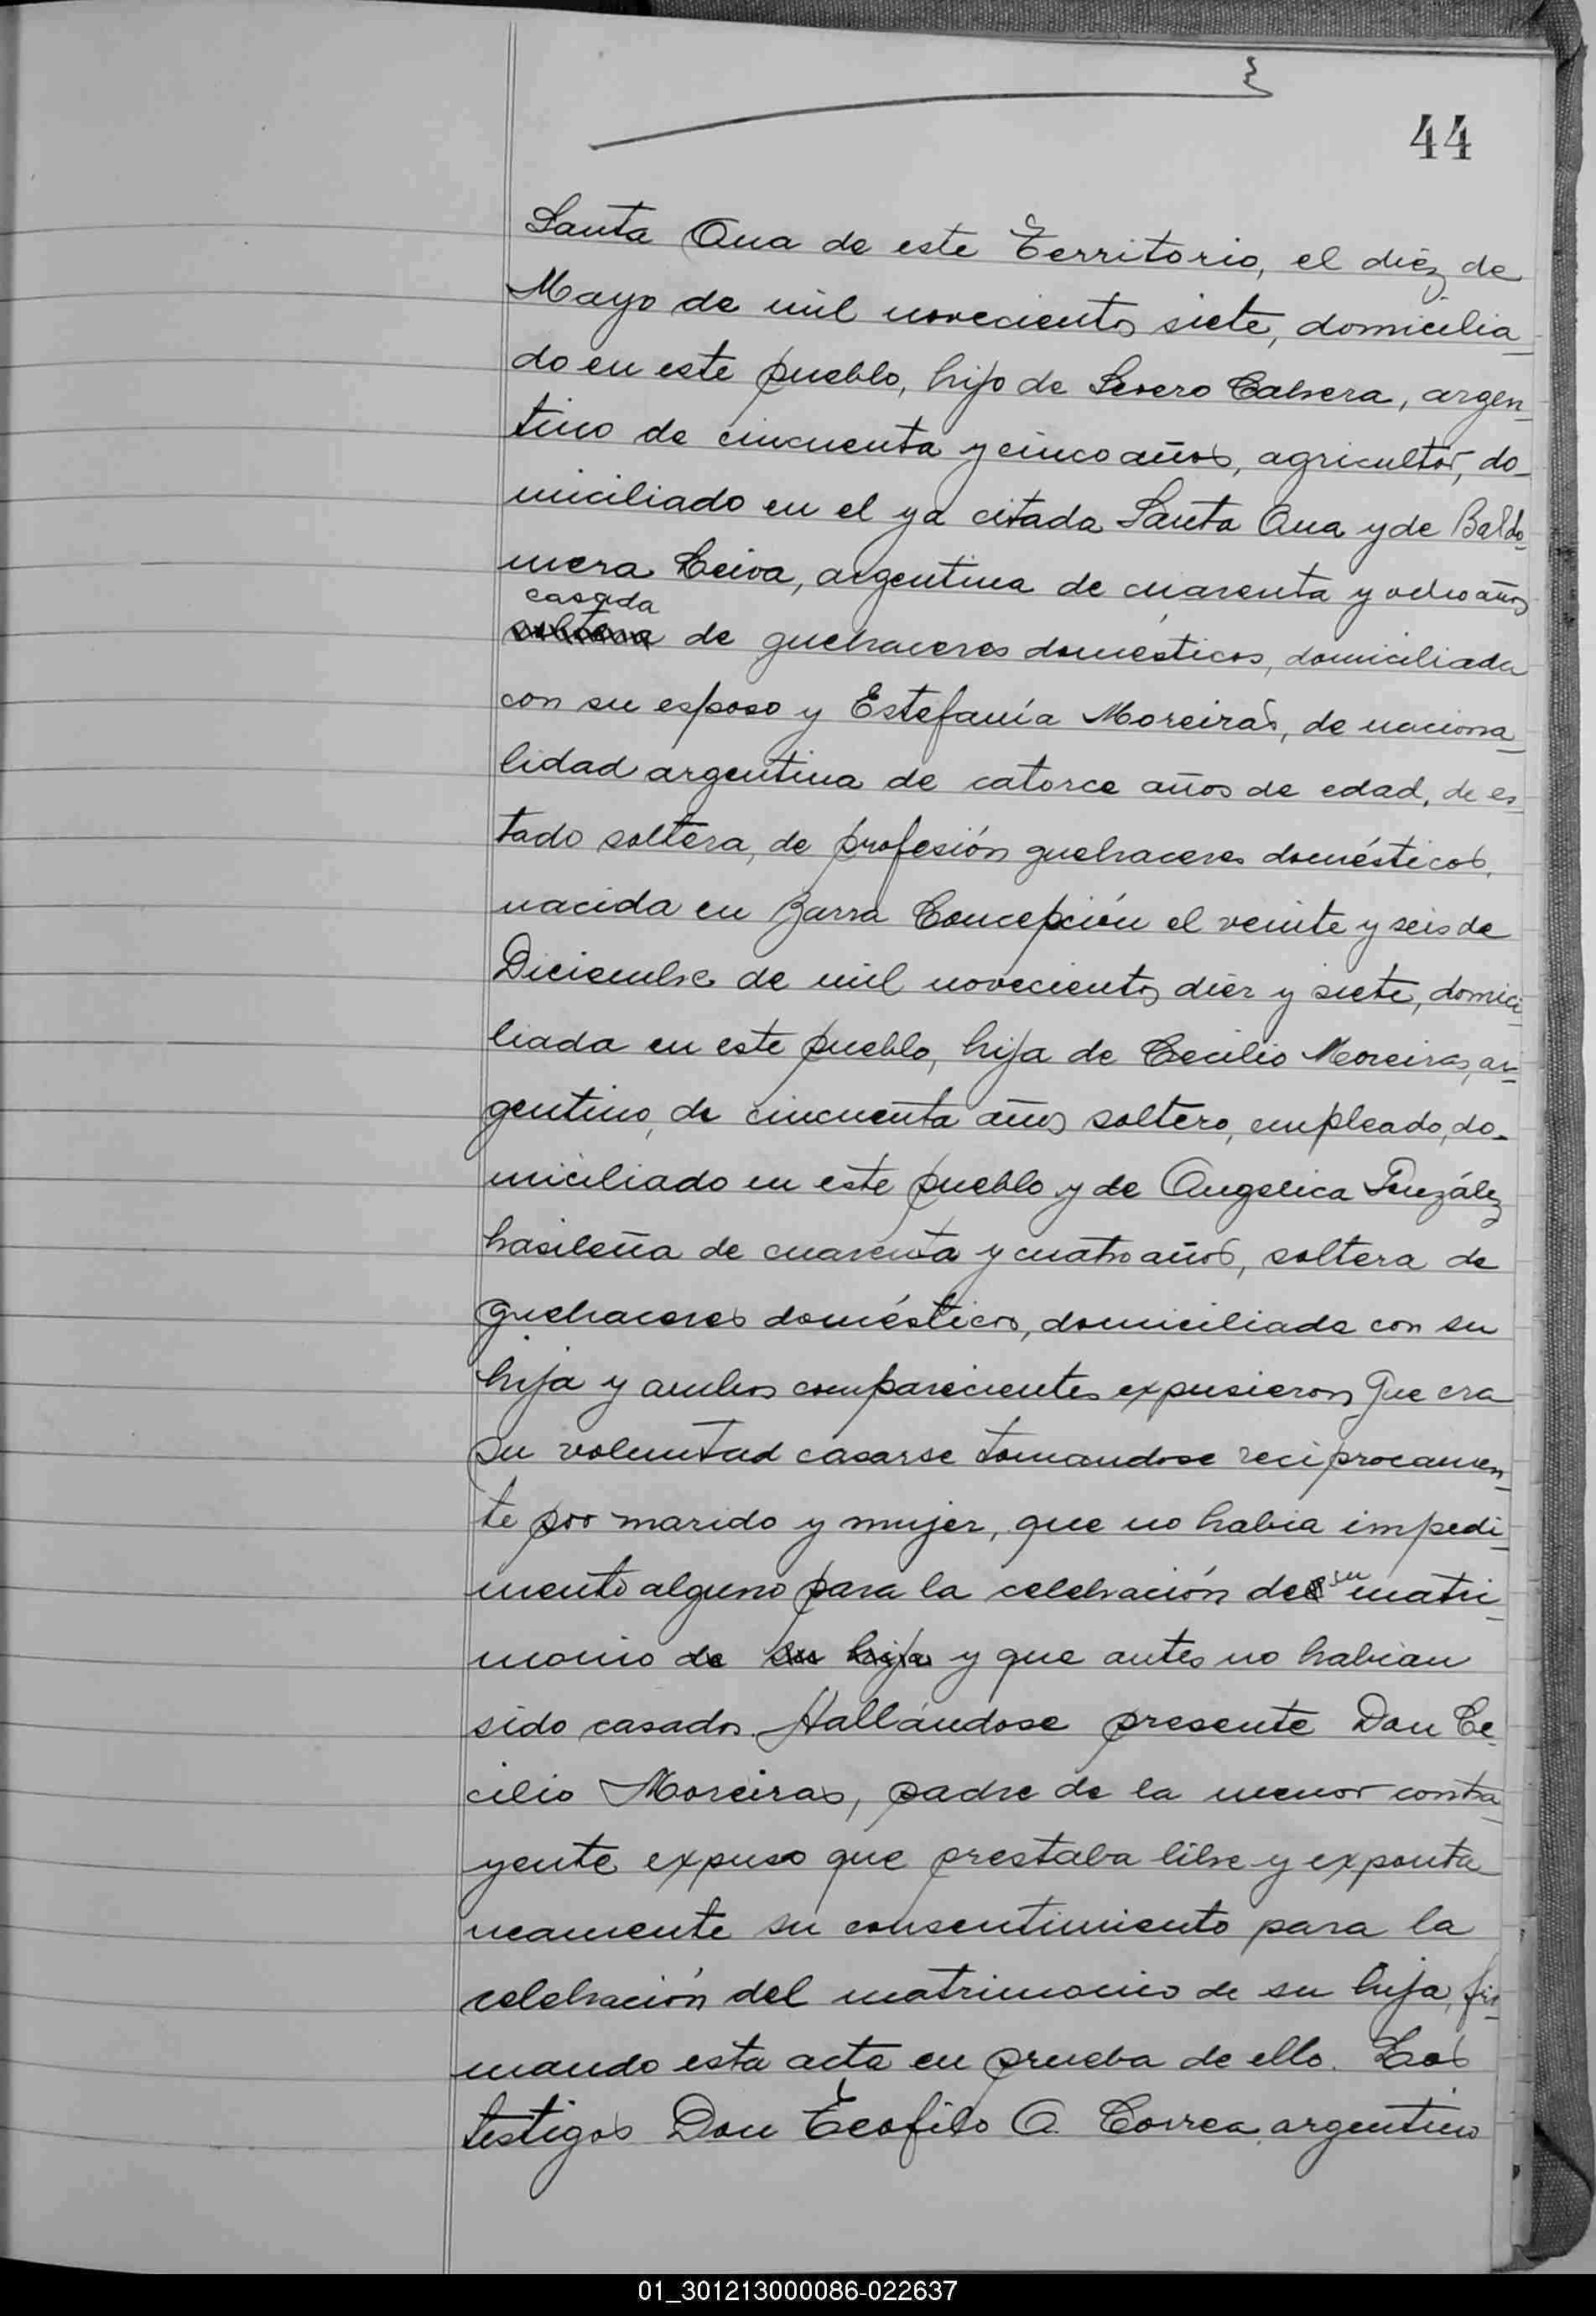 44
Santa Ana de este Territorio, el diéz de
Mayo de mil novecientos siete, domicilia-
do en este pueblo, hijo de Severo Cabrera, argen-
tino de cincuenta y cinco años, agricultor, do-
miciliado en el ya citada Santa Ana y de Baldo-
mera Leiva, argentina de cuarenta y ocho años
casada
soltera de quehaceres domésticos, domiciliada
con su esposo y Estefanía Moreiras, de naciona-
lidad argentina de catorce años de edad, de es-
tado soltera, de profesión quehaceres domésticos,
nacida en Barra Concepción el veinte y seis de
Diciembre de mil novecientos diéz y siete, domici-
liada en este pueblo, hija de Cecilio Moreiras, ar-
gentino, de cincuenta años soltero, empleado, do-
miciliado en este pueblo y de Angelica Gonzáléz
brasileña de cuarenta y cuatro años, soltera de
quehaceres domésticos, domiciliada con su
hija y ambos comparecientes expusieron que era
su voluntad casarse tomandose reciprocamen-
te por marido y mujer, que no habia impedi-
mento alguno para la celebración del su matri-
monio de su hija y que antes no habian
sido casados. Hallándose presente Don Ce-
cilio Moreiras, padre de la menor contra-
yente expuso que prestaba libre y exponta-
neamente su consentimiento para la
celebración del matrimonio de su hija, fir-
mando esta acta en prueba de ello. Los
testigos Don Teofilo A. Correa, argentino
01_301213000086-022637